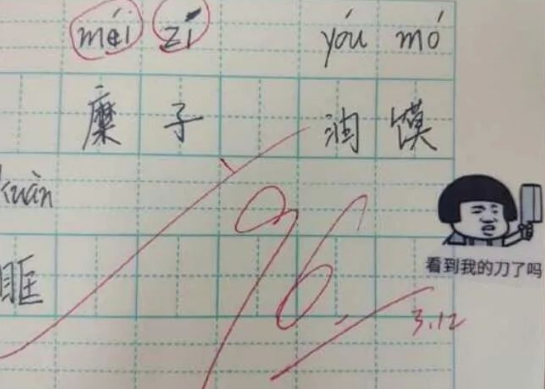 méi zǐ yóu mó
糜 子 油 馍
kuàn
眶
96
3.12
看到我的刀了吗